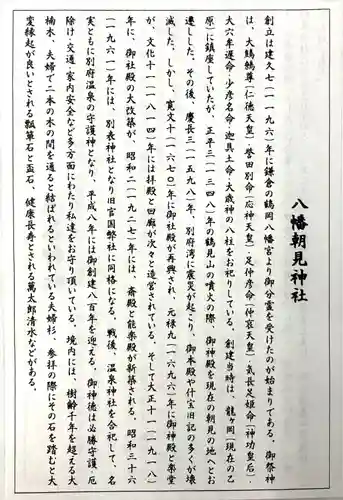 八幡朝見神社
創立は建久七(一一九六)年に鎌倉の鶴岡八幡宮より御分霊を受けたのが始まりである。御祭神
は、大鷦鷯尊(仁徳天皇)・誉田別命(応神天皇)・足仲彦命(仲哀天皇)・気長足姫命(神功皇后)・
大六牟遅命・少彦名命・迦具土命・大歳神の八柱をお祀りしている。創建当時は、龍ヶ岡(現在の乙
原)に鎮座していたが、正平三(一三四八)年の鶴見山の噴火の際、御神殿を現在の朝見の地へとお
遷しした。その後、慶長三(一五九八)年、別府湾に震災が起こり、御本殿や什宝旧記の多くが壊
滅した。しかし、寛文十(一六七〇)年に御社殿が再興され、元禄九(一六九六)年に御神殿と楽堂
が、文化十一(一八一四)年には拝殿と回廊が次々と造営されている。そして大正十一(一九一八)
年に、御社殿の大改築が、昭和二(一九二七)年には、斎殿と能楽殿が新築される。昭和三十六
(一九六一)年には、別表神社となり旧官国幣社に同格になる。戦後、温泉神社を合祀して、名
実ともに別府温泉の守護神となり、平成八年には御創建八百年を迎える。御神徳は必勝守護・厄
除け・交通・家内安全など多方面にわたり私達をお守り頂いている。境内には、樹齢千年を超える大
楠木、夫婦で二本の木の間を通ると結ばれるといわれている夫婦杉、参拝の際にその石を踏むと大
変縁起が良いとされる瓢箪石と盃石、健康長寿とされる萬太郎清水などがある。